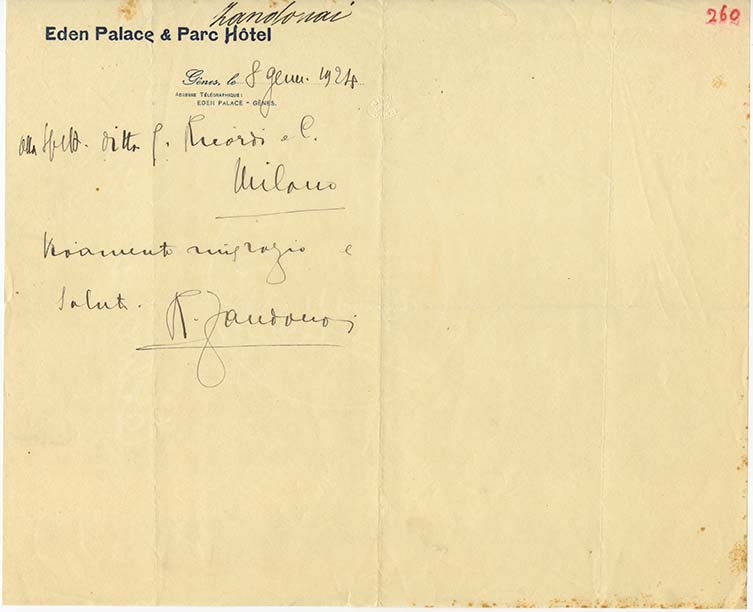 Zandonai
260
Eden Palace & Parc Hôtel
Gênes, le 8 genn. 1924
ADRESSE TÉLÉGRAPHIQUE:
EDEN PALACE - GÊNES.
alla Spett. ditta G. Ricordi e C.
Milano
ringrazio e
Saluti.
R. Zandonai